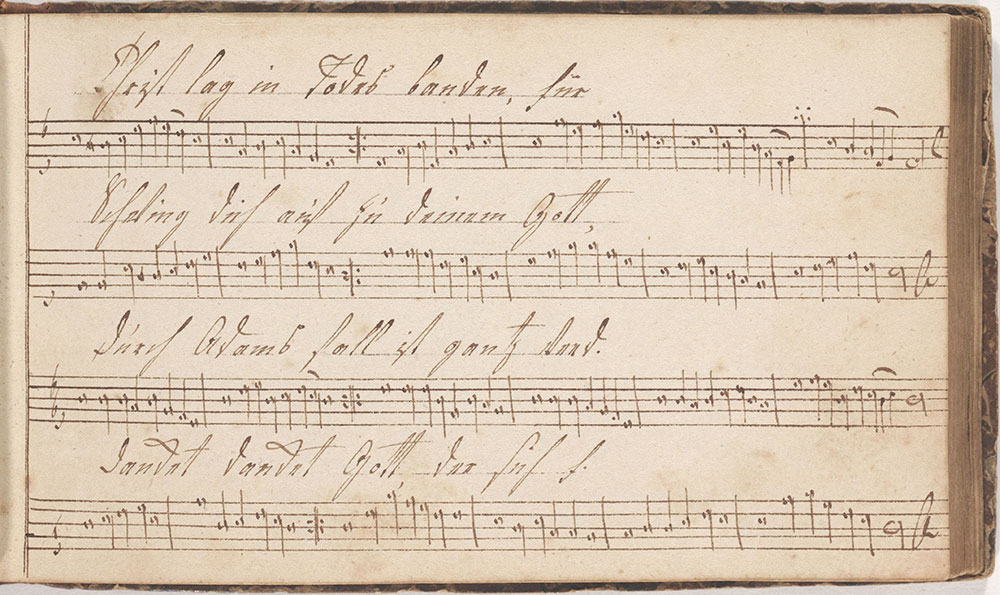 Christ lag in Todes banden, für
Schwing dich auf zu deinem Gott,
durch Adams fall ist gantz verd.
danket danket Gott, der sich